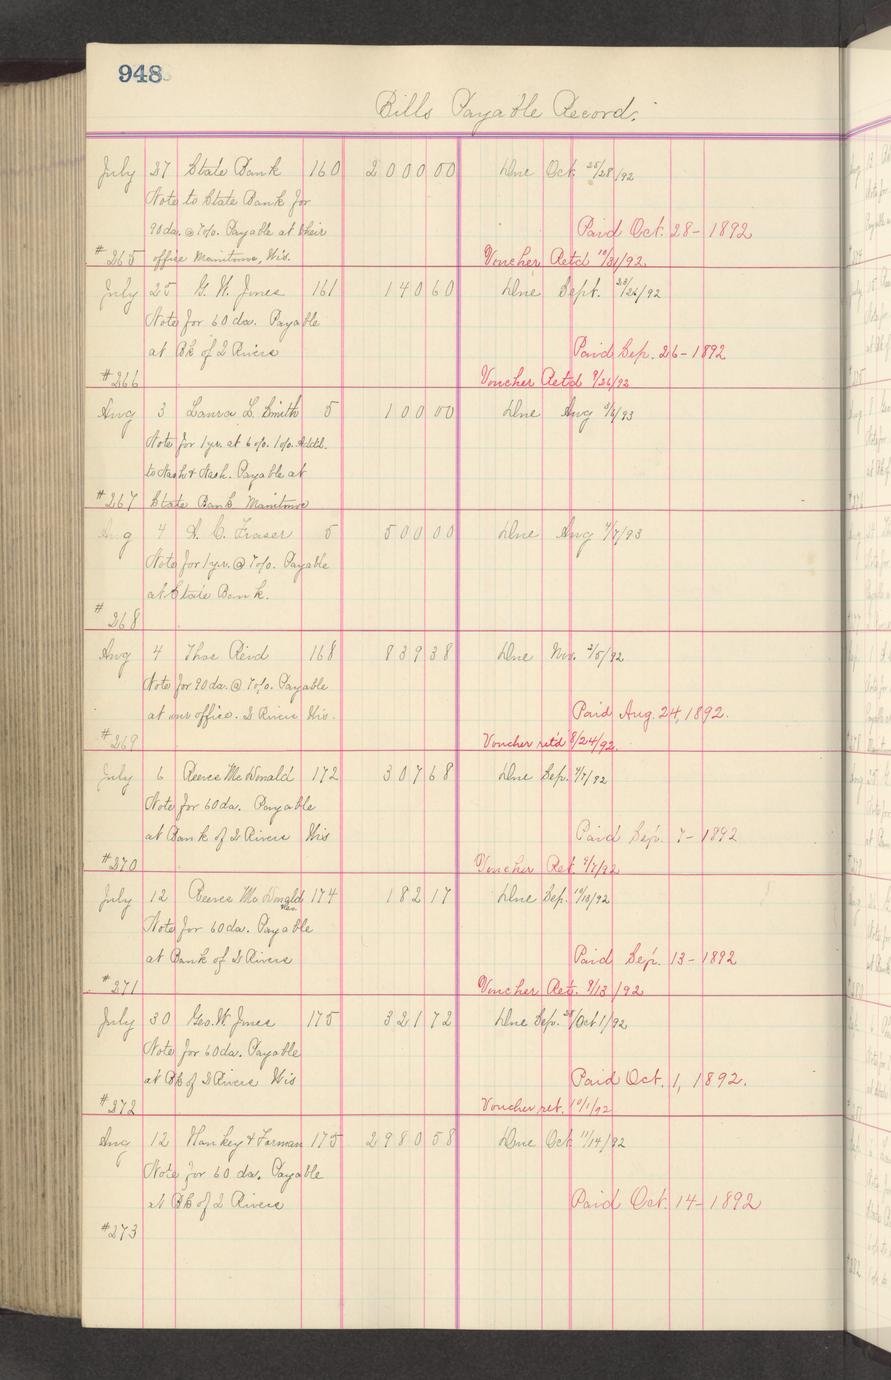 948
Bills Payable Record.
July 27 State Bank 160 2000 00 Due Oct. 25/28/92
Note to State Bank for
90 da. @ 7%. Payable at their Paid Oct. 28 - 1892
#265 office Manitowoc, Wis. Voucher Retd 10/31/92.
July 25 G. W. Jones 161 140 60 Due Sept. 23/26/92
Note for 60 da. Payable
at Bk of 2 Rivers Paid Sep. 26 - 1892
#266 Voucher Retd 9/26/92
Aug 3 Laura L. Smith 5 100 00 Due Aug 3/6/93
Note for 1 yr. at 6%. 1%. Addtl.
to Nash & Nash. Payable at
#267 State Bank Manitowoc
Aug 4 A. C. Fraser 5 500 00 Due Aug 4/7/93
Note for 1 yr. @ 7%. Payable
at State Bank.
#268
Aug 4 Thos Reid 168 839 38 Due Nov. 2/5/92
Note for 90 da. @ 7%. Payable
at our office. 2 Rivers Wis. Paid Aug. 24, 1892.
#269 Voucher ret'd 8/24/92.
July 6 Reeves McDonald 172 307 68 Due Sep. 4/7/92
Note for 60 da. Payable
at Bank of 2 Rivers Wis Paid Sep. 7 - 1892
#270 Voucher Ret. 9/7/92
July 12 Reeves McDonald 174 182 17 Due Sep. /92
Note for 60 da. Payable
at Bank of 2 Rivers Paid Sep. 13 - 1892
#271 Voucher Ret. 9/13/92
July 30 Geo. W Jones 175 321 72 Due Sep. 28/Oct 1/92
Note for 60 da. Payable
at Bk of 2 Rivers Wis Paid Oct. 1, 1892.
#272 Voucher ret. 10/1/92
Aug 12 Hankey & Forman 175 2980 58 Due Oct. 11/14/92
Note for 60 da. Payable
at Bk of 2 Rivers Paid Oct. 14 - 1892
#273